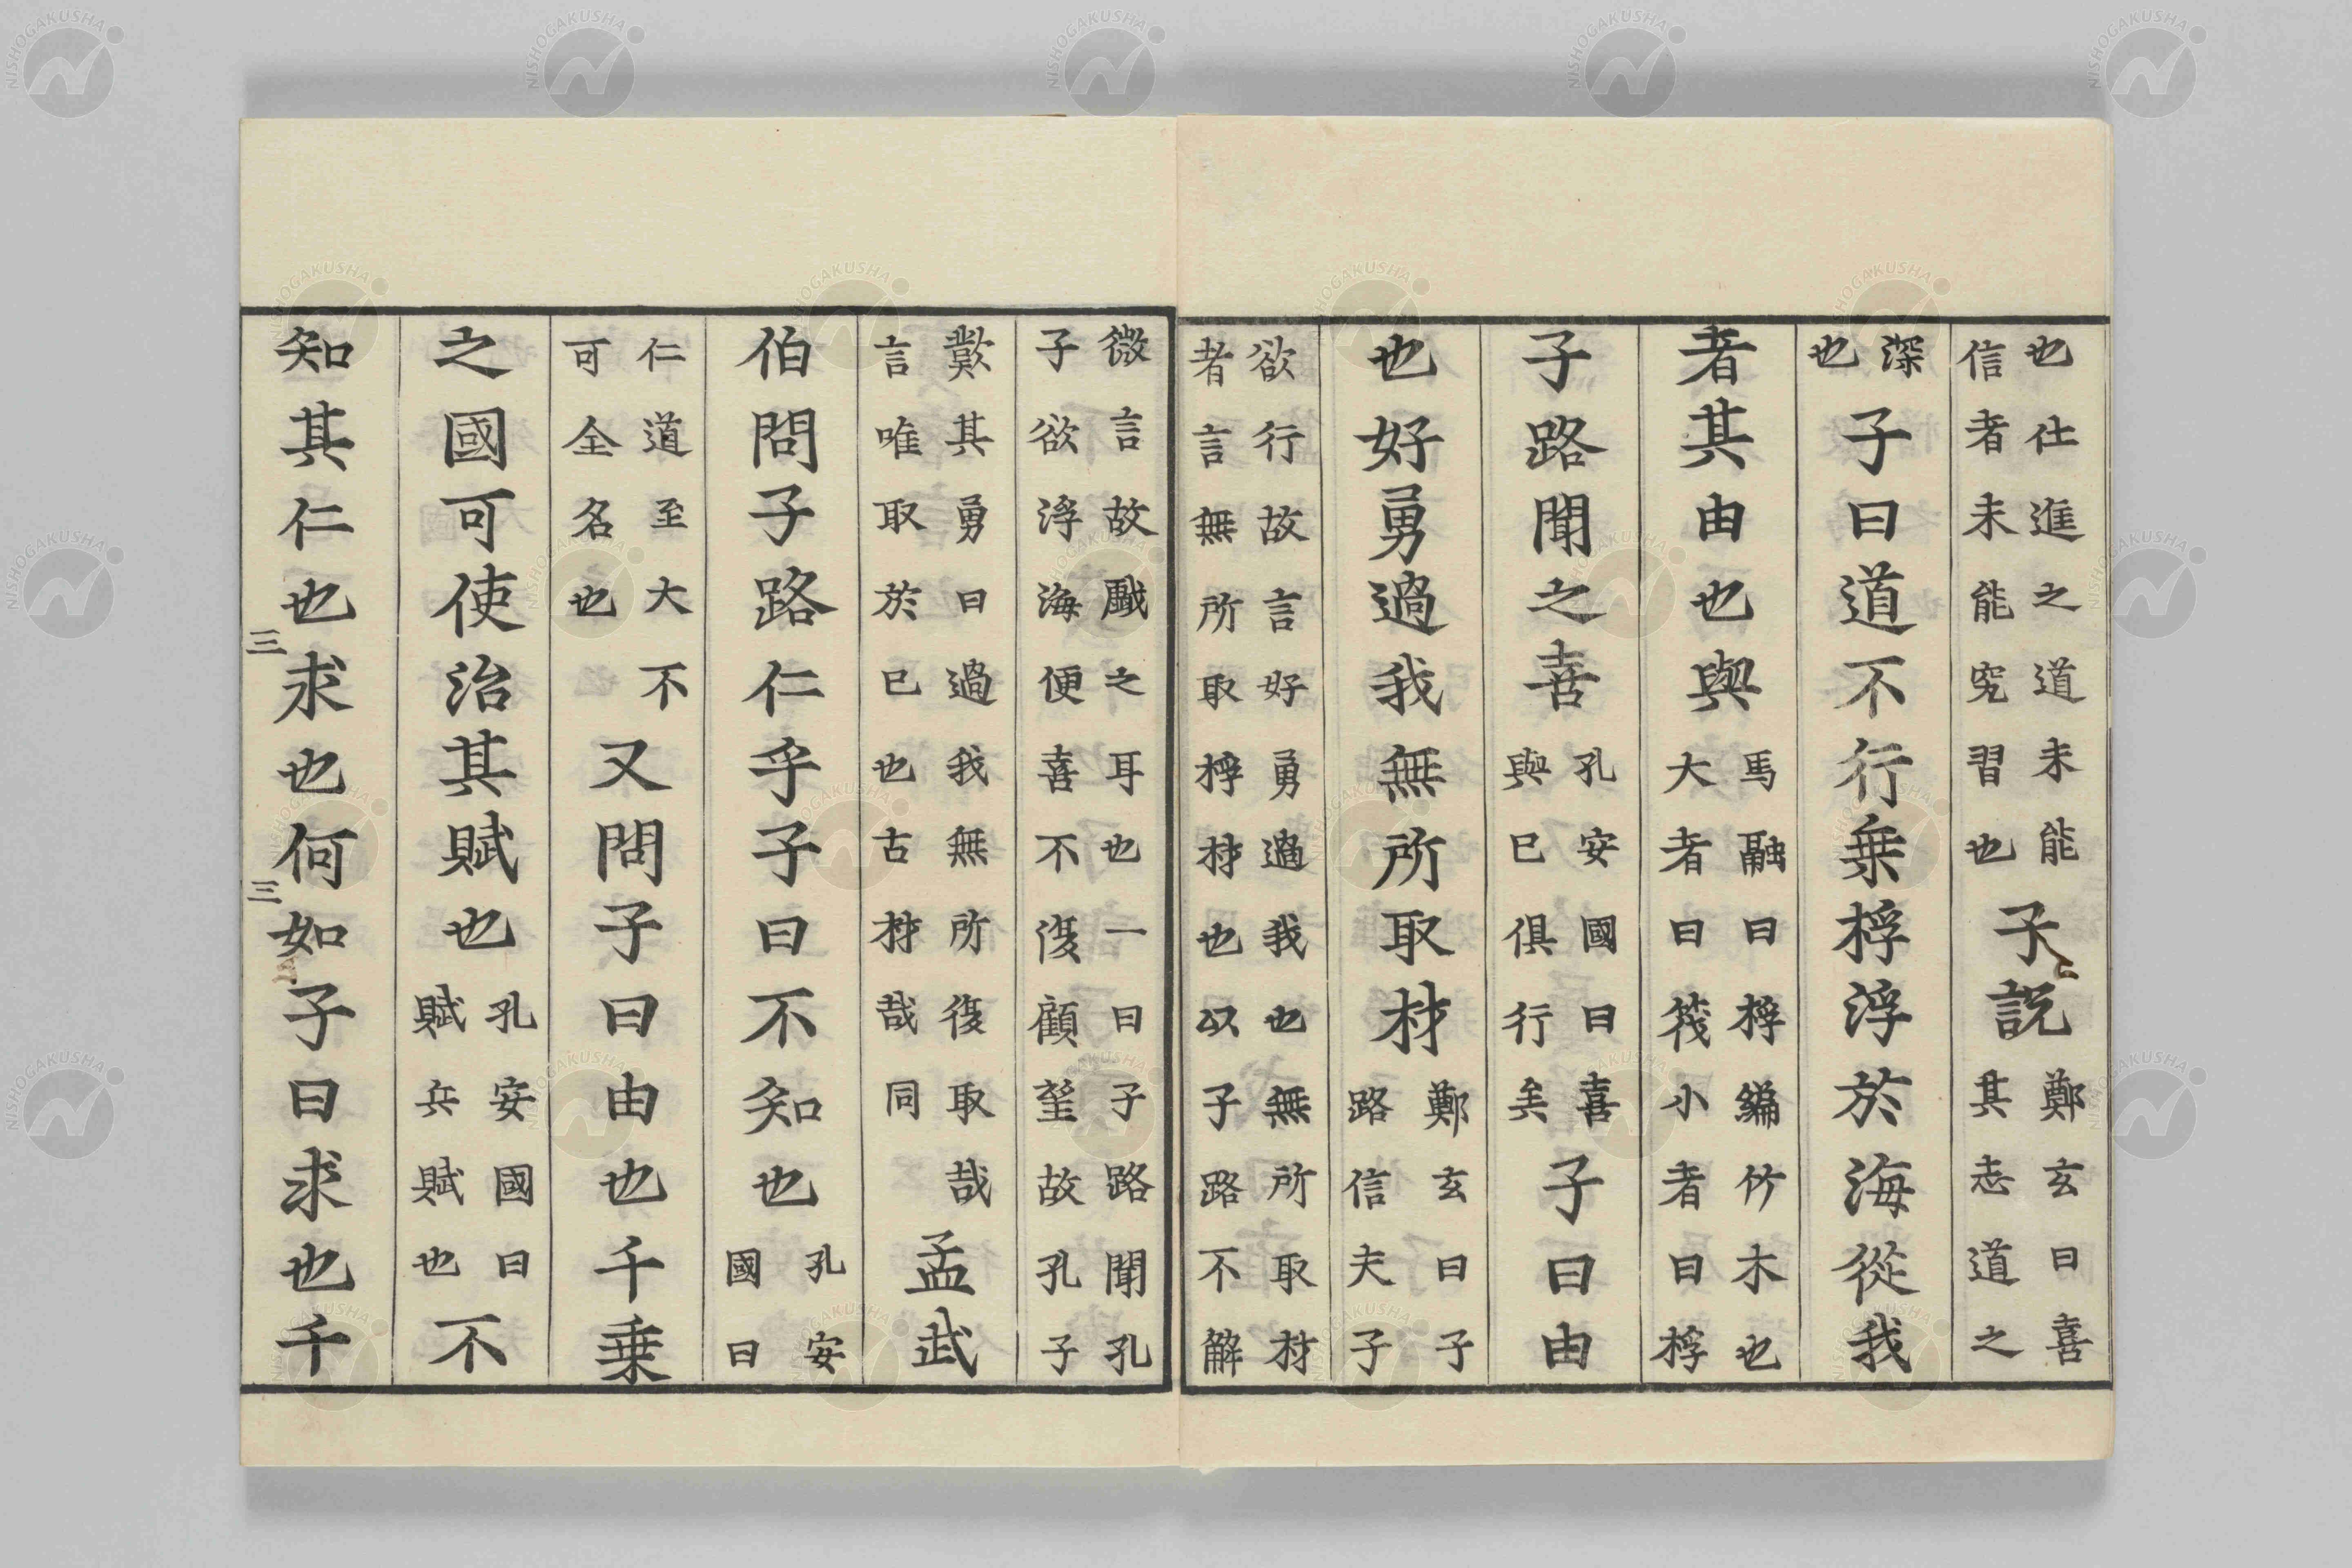 也仕進之道未能信者未能究習也子説鄭玄曰喜其志道之
深也子曰道不行乗桴浮於海從我
者其由也與馬融曰桴編竹木也大者曰筏小者曰桴
子路聞之喜孔安國曰喜與已俱行矣子曰由
也好勇過我無所取材鄭玄曰子路信夫子
欲行故言好勇過我也無所取材者言無所取桴材也以子路不解
微言故戱之耳也一曰子路聞孔子欲浮海便喜不復顧望故孔子
歎其勇曰過我無所復取哉言唯取於已也古材哉同孟武
伯問子路仁乎子曰不知也孔安國曰
仁道至大不可全名也又問子曰由也千乗
之國可使治其賦也孔安國曰賦兵賦也不
知其仁也求也何如子曰求也千
三
三
NISHOGAKUSHA